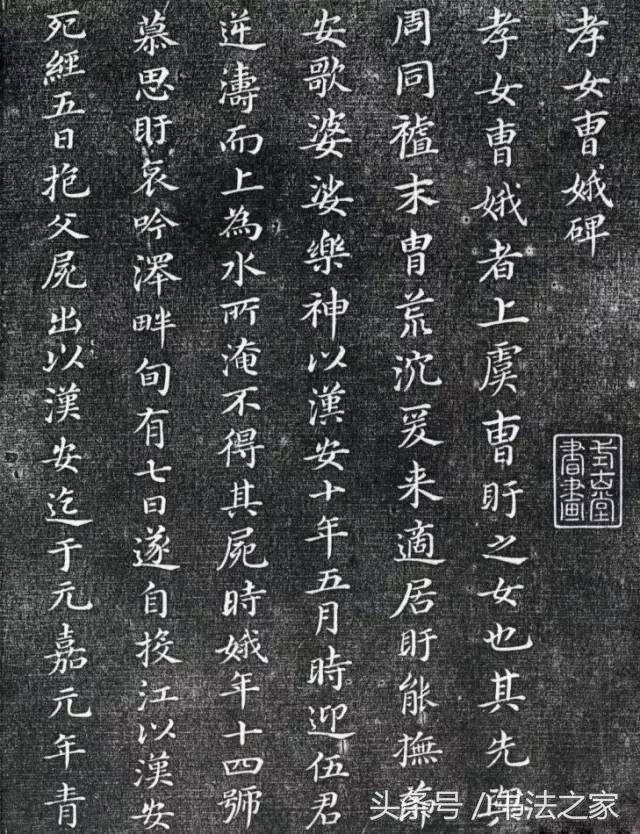 孝女曹娥碑
孝女曹娥者上虞曹盱之女也其先與
周同末胄荒沉爰来適居盱能撫節
安歌婆娑樂神以漢安十年五月時迎伍君
逆濤而上為水所淹不得其屍時娥年十四號
慕思盱哀吟澤畔旬有七日遂自投江以漢安
死經五日抱父屍出以漢安迄于元嘉元年青
堂書畫
头条号 / 书法之家